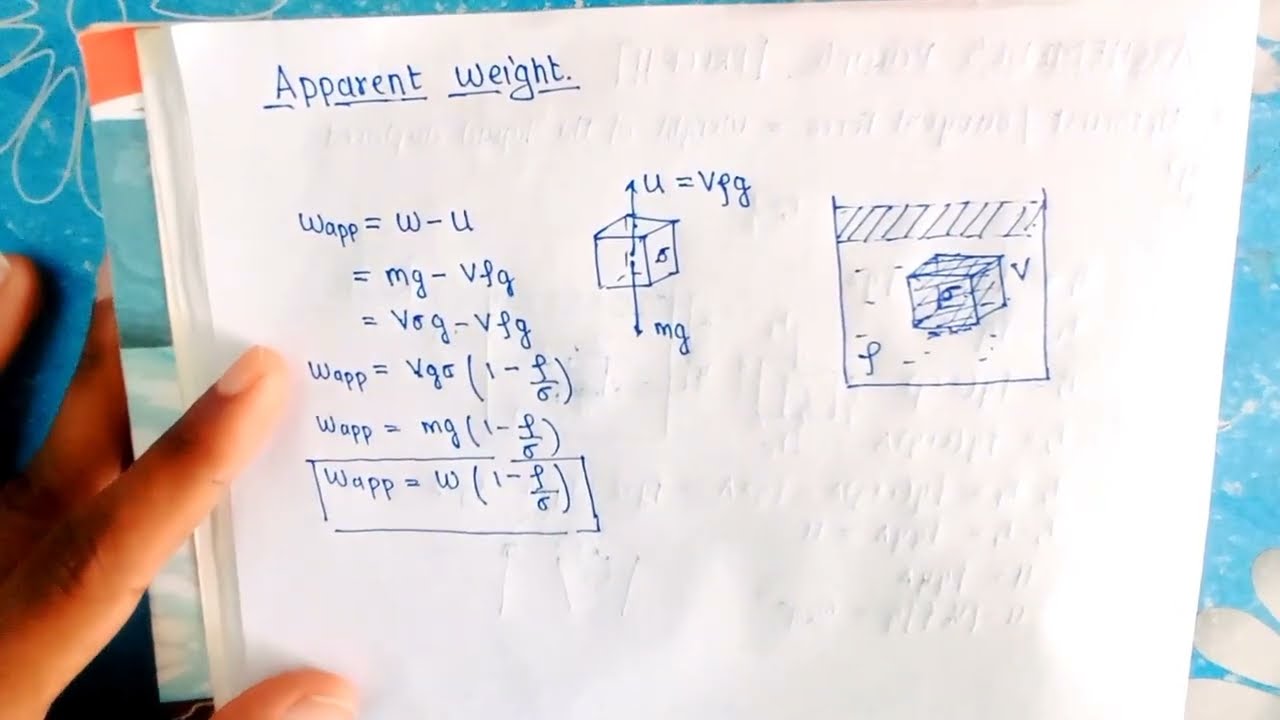 Apparent weight.
Wapp = W - U
= mg - Vρg
= Vσg - Vρg
Wapp = Vgσ (1 - ρ/σ)
Wapp = mg (1 - ρ/σ)
Wapp = W (1 - ρ/σ)
U = Vρg
σ
mg
V
σ
ρ